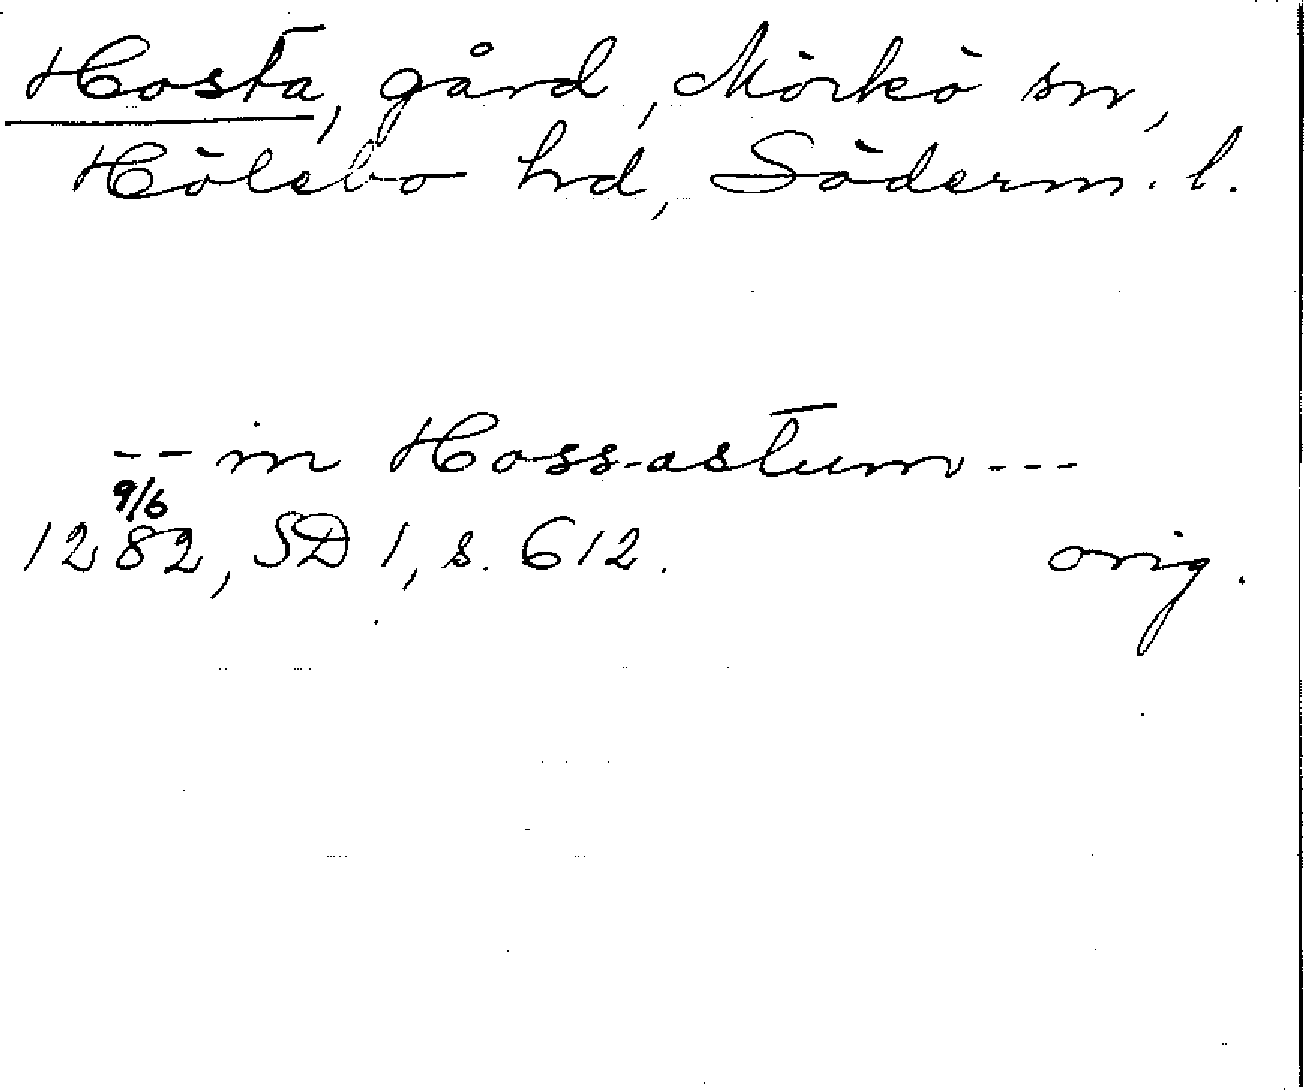 Hosta, gård, Mörkö sn,
Hölebo hd, Söderm. l.
-- in Hoss-astum ---
9/6
1282, SD 1, s. 612. orig.